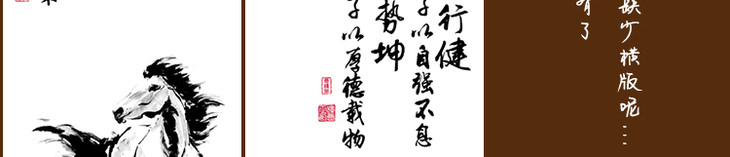 行健
子以自强不息
勢坤
子以厚德載物
缺少横版呢...
有了